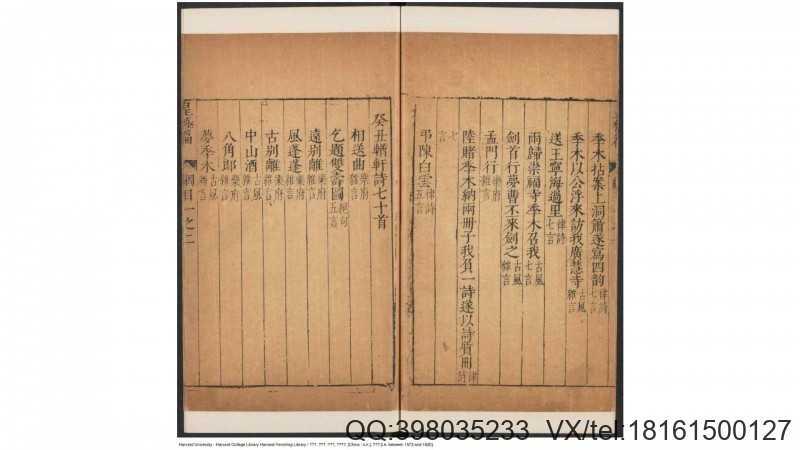 季木拈秦上洞簫遂寫四韵 律詩七言
季木以公浮來訪我廣慧寺 古風雜言
送王寧海過里 律詩七言
雨歸崇福寺季木召我 古風七言
劍首行夢曹丕來劍之 古風雜言
孟門行 樂府雜言
陸賭季木納兩冊子我負一詩遂以詩質冊 律詩七言
弔陳白雲 律詩五言
癸丑輶軒詩七十首
相送曲 樂府雜言
乞題雙壽圖 絕句五言
遠別離 樂府雜言
風蓬蓬 樂府雜言
古別離 樂府雜言
中山酒 古風雜言
八角郎 樂府雜言
夢季木 古風
綱目一之二
Harvard University - Harvard College Library Harvard-Yenching Library / ???, ???, ???, ????. [China : s.n.], ????
QQ:398035233 VX/tel:18161500127